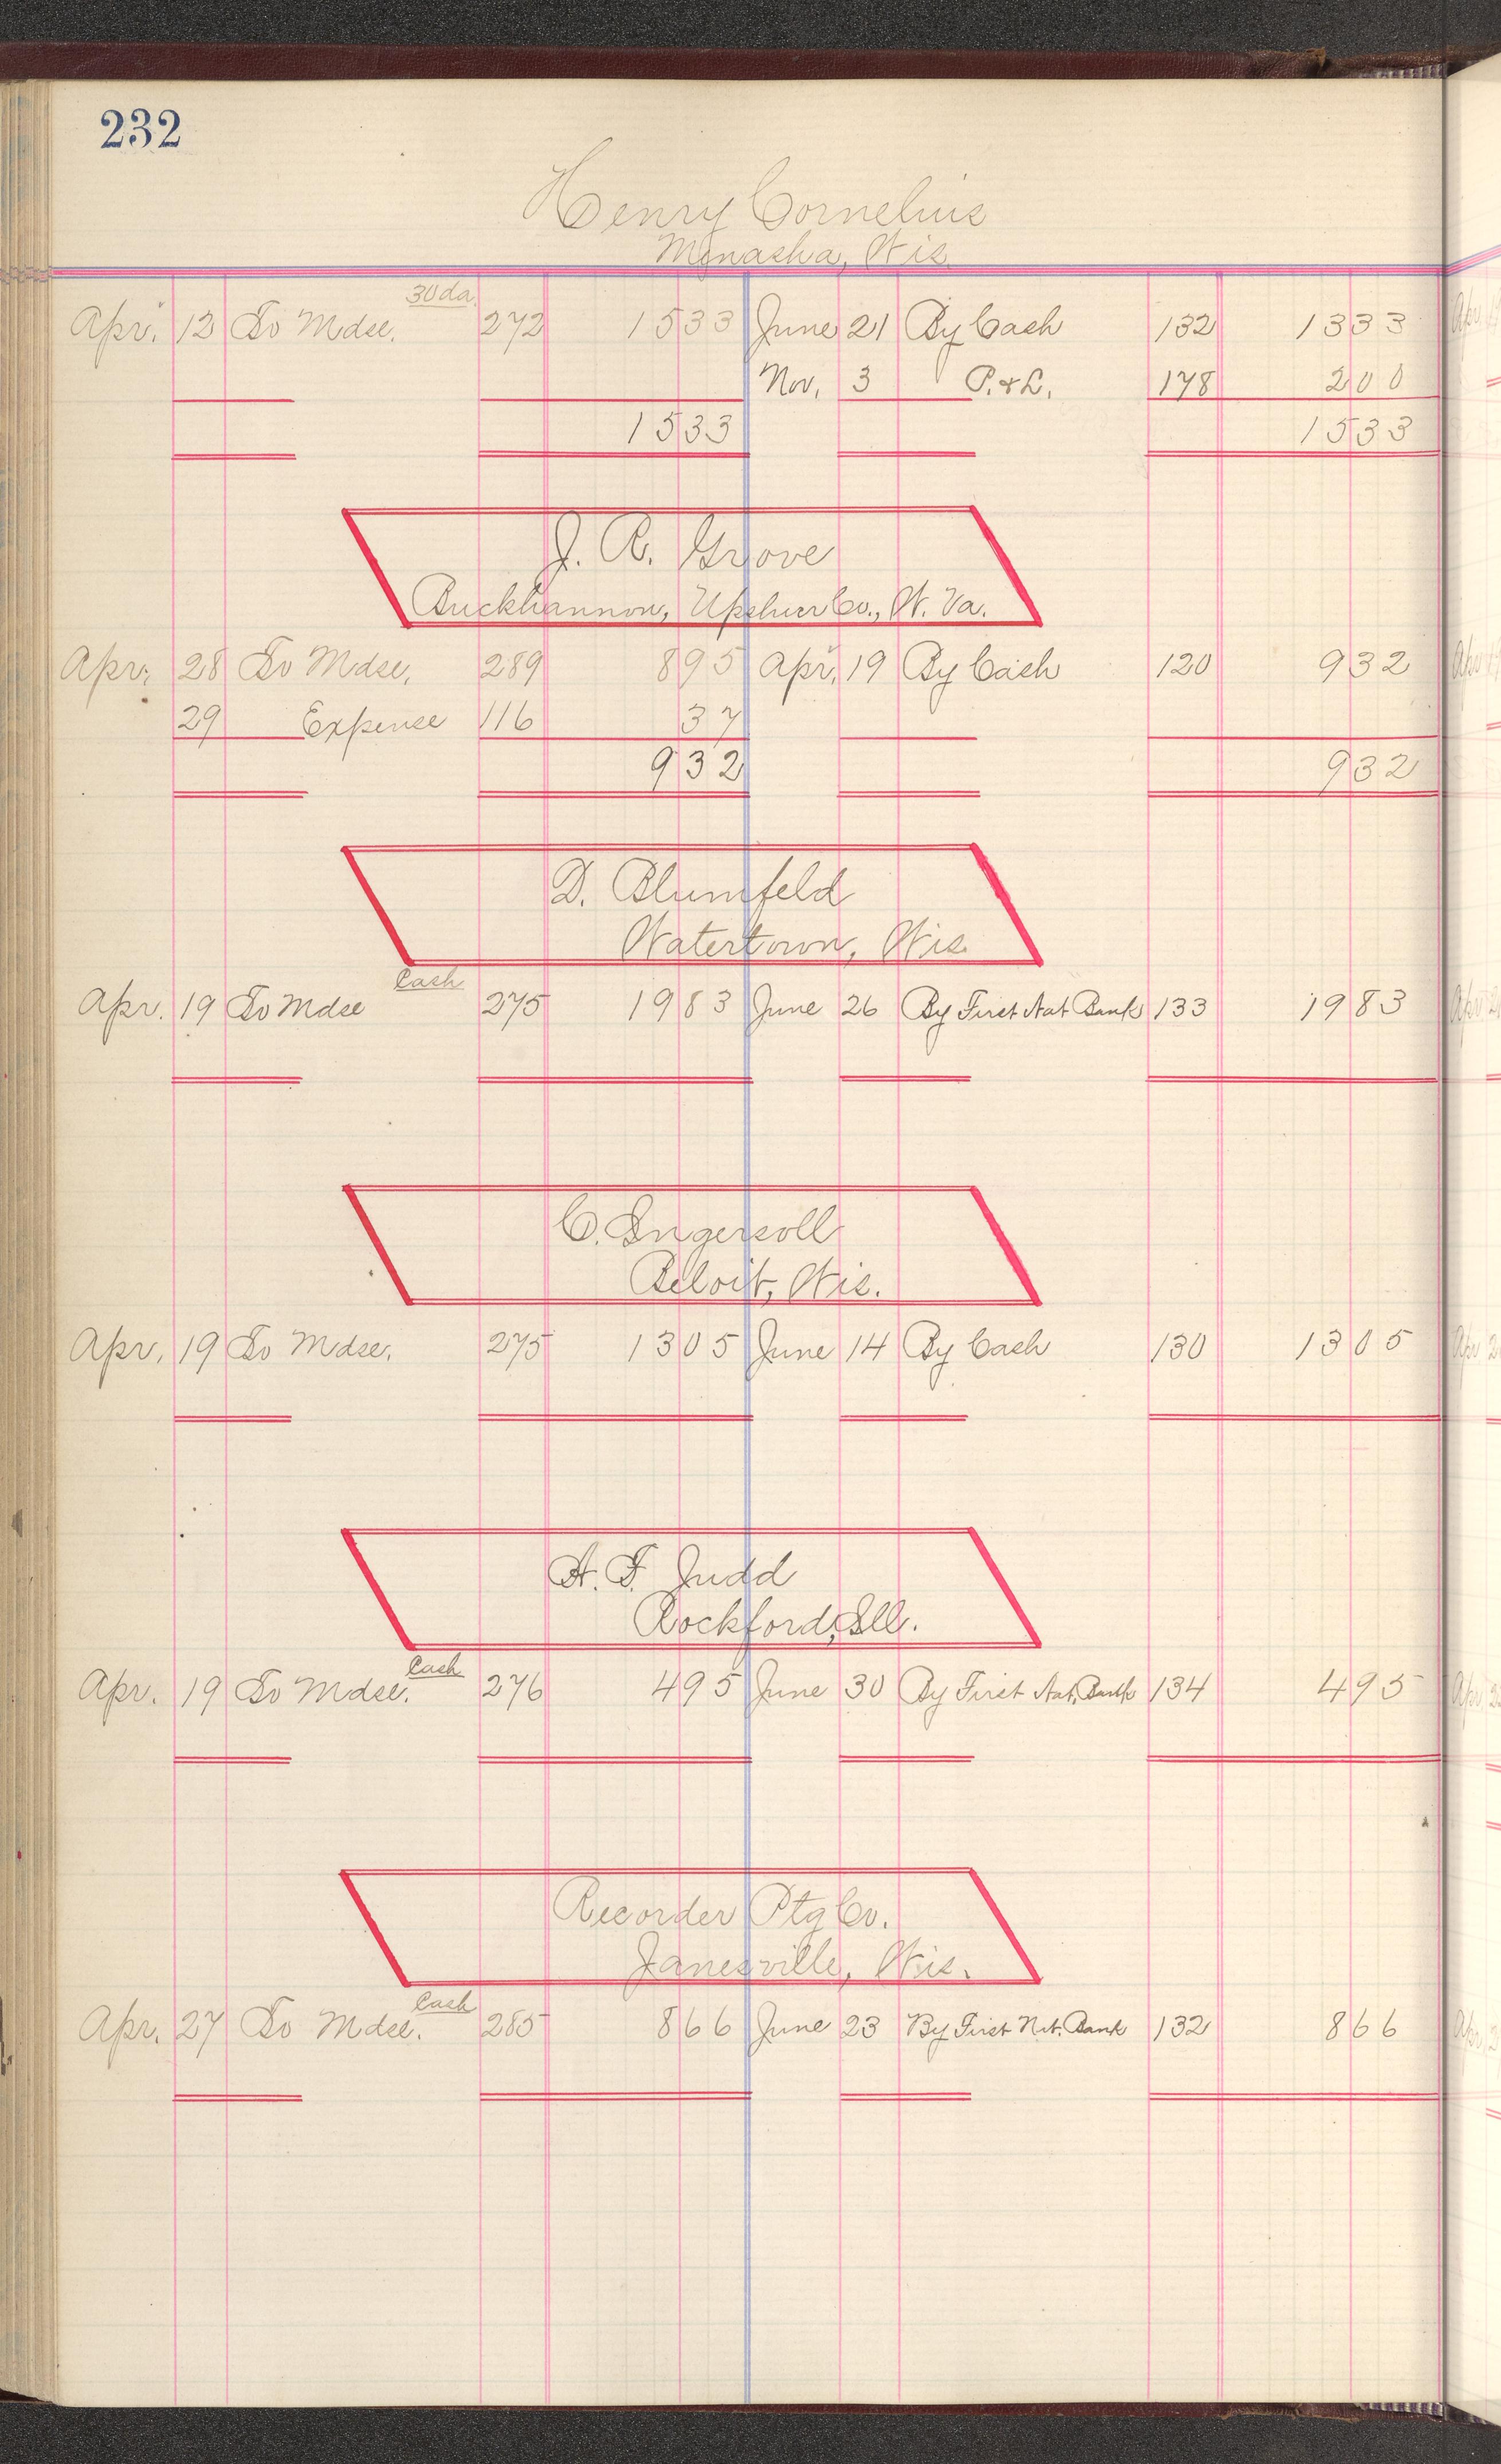 232
Henry Cornelius
Menasha, Wis.
30 da.
Apr. 12 To Mdse. 272 1533 June 21 By Cash 132 1333
Nov. 3 P. & L. 178 200
1533 1533
J. R. Grove
Buckhannon, Upshur Co., W. Va.
Apr. 28 To Mdse. 289 895 Apr. 19 By Cash 120 932
29 Expense 116 37
932 932
D. Blumfeld
Watertown, Wis.
Cash
Apr. 19 To Mdse 275 1983 June 26 By First Nat Bank 133 1983
C. Ingersoll
Beloit, Wis.
Apr. 19 To Mdse. 275 1305 June 14 By Cash 130 1305
A. F. Judd
Rockford, Ill.
Cash
Apr. 19 To Mdse. 276 495 June 30 By First Nat. Bank 134 495
Recorder Ptg Co.
Janesville, Wis.
Cash
Apr. 27 To Mdse. 285 866 June 23 By First Nat. Bank 132 866